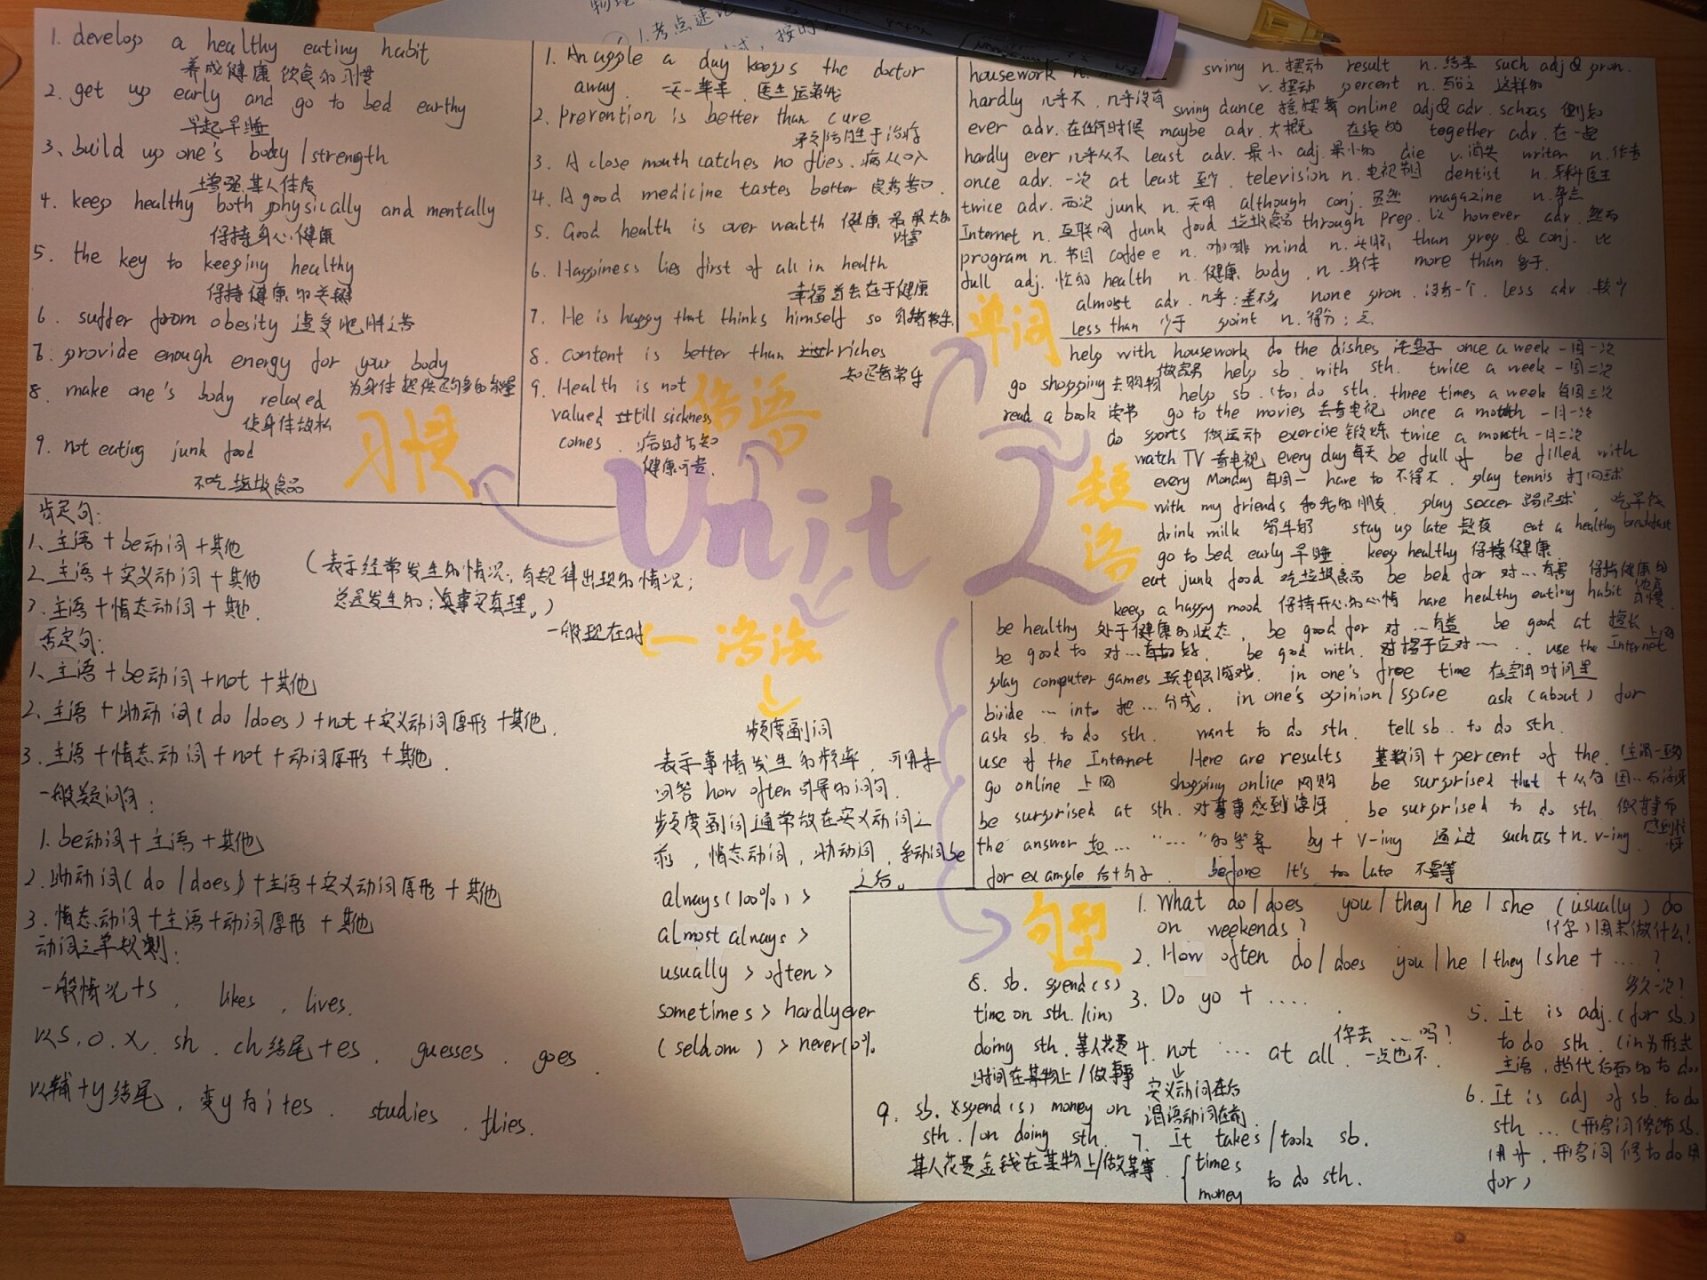 1. develop a healthy eating habit
养成健康饮食的习惯
2. get up early and go to bed earthy
早起早睡
3、build up one's body / strength
增强某人体质
4. keep healthy both physically and mentally
保持身心健康
5. the key to keeping healthy
保持健康的关键
6. suffer from obesity 遭受肥胖之苦
7. provide enough energy for your body
为身体提供足够多的能量
8. make one's body relaxed
使身体放松
9. not eating junk food
不吃垃圾食品
习惯
1. An apple a day keeps the doctor
away. 一天一苹果，医生远离我
2. Prevention is better than cure
预防胜于治疗
3. A close mouth catches no flies. 病从口入
4. A good medicine tastes better 良药苦口.
5. Good health is over wealth 健康是最大的
财富
6. Happiness lies first of all in health
幸福首先在于健康
7. He is happy that thinks himself so 自得其乐
8. content is better than riches
知足者常乐
9. Health is not
valued till sickness
comes. 病时方知
健康可贵.
谚语
housework n. swing n. 摆动 result n. 结果 such adj & pron.
v. 摆动 percent n. 百分之 这样的
hardly 几乎不，几乎没有 swing dance 摇摆舞 online adj & adv.
ever adv. 在任何时候 maybe adv. 大概 在线的 together adv. 在一起
hardly ever 几乎从不 least adv. 最小 adj. 最小的 die v. 消失 writer n. 作者
once adv. 一次 at least 至少. television n. 电视节目 dentist n. 牙科医生
twice adv. 两次 junk n. 无用 although conj. 虽然 magazine n. 杂志
Internet n. 互联网 junk food 垃圾食品 through prep. 以 however adv. 然而
program n. 节目 coffee n. 咖啡 mind n. 头脑 than prep. & conj. 比
full adj. 忙的 health n. 健康 body n. 身体 more than 多于.
almost adv. 几乎；差不多 none pron. 没有一个. less adv. 较少
less than 少于 point n. 得分；点
单词
help with housework 做家务 do the dishes 洗盘子 once a week 一周一次
go shopping 去购物 help sb. with sth. twice a week 一周二次
help sb. (to) do sth. three times a week 每周三次
read a book 读书 go to the movies 去看电视 once a month 一月一次
do sports 做运动 exercise 锻炼 twice a month 一月二次
watch TV 看电视 every day 每天 be full of be filled with
every Monday 每周一 have to 不得不. play tennis 打网球
with my friends 和我的朋友. play soccer 踢足球 吃早饭
drink milk 喝牛奶 stay up late 熬夜 eat a healthy breakfast
go to bed early 早睡 keep healthy 保持健康
eat junk food 吃垃圾食品 be bad for 对…有害 保持健康的
keep a happy mood 保持开心的心情 have healthy eating habit
短语
be healthy 处于健康的状态. be good for 对…有益 be good at 擅长
be good to 对…友好. be good with. 对擅于应对… use the Internet 上网
play computer games 玩电脑游戏. in one's free time 在空闲时间里
bivide … into 把…分成. in one's opinion / ask (about) for
ask sb. to do sth. want to do sth. tell sb. to do sth.
use of the Internet Here are results 基数词 + percent of the
go online 上网 shopping online 网购 be surprised that + 从句
be surprised at sth. 对某事感到惊讶 be surprised to do sth. 做某事而
the answer to… "…"的答案 by + v-ing 通过 such as + n. v-ing.
for example 后+句子. before it's too late 不要等
Unit 2
肯定句：
1、主语 + be动词 + 其他
2. 主语 + 实义动词 + 其他
3. 主语 + 情态动词 + 其他.
（表示经常发生的情况；有规律出现的情况；
总是发生的；真事实真理。）
一般现在时
语法
否定句：
1、主语 + be动词 + not + 其他
2. 主语 + 助动词 (do / does) + not + 实义动词原形 + 其他.
3. 主语 + 情态动词 + not + 动词原形 + 其他.
一般疑问句：
1. be动词 + 主语 + 其他
2. 助动词 (do / does) + 主语 + 实义动词原形 + 其他
3. 情态动词 + 主语 + 动词原形 + 其他
动词三单规则：
一般情况 +s, likes, lives.
以s, o, x, sh, ch结尾 +es, guesses, goes
以辅+y结尾, 变y为i +es. studies, flies.
频度副词
表示事情发生的频率，可用来
回答 how often 引导的问句.
频度副词通常放在实义动词之
前，情态动词，助动词，系动词be
之后。
always (100%) >
almost always >
usually > often >
sometimes > hardly ever
(seldom) > never (0%
句型
1. What do / does you / they / he / she (usually) do
on weekends? (你) 周末做什么!
2. How often do / does you / he / they / she + …. ?
多久一次?
3. Do yo + ….
你去……吗?
4. not … at all 一点也不.
实义动词在后
谓语动词在前
5. It is adj. (for sb.)
to do sth. (it为形式
主语，替代后面的to do)
6. It is adj of sb. to do
sth … (形容词修饰sb.
用of，形容词修to do用
for)
7. It takes / took sb.
times
money
to do sth.
8. sb. spend(s)
time on sth. / (in)
doing sth. 某人花费
时间在某物上 / 做某事
9. sb. spend(s) money on
sth. / on doing sth.
某人花费金钱在某物上 / 做某事.